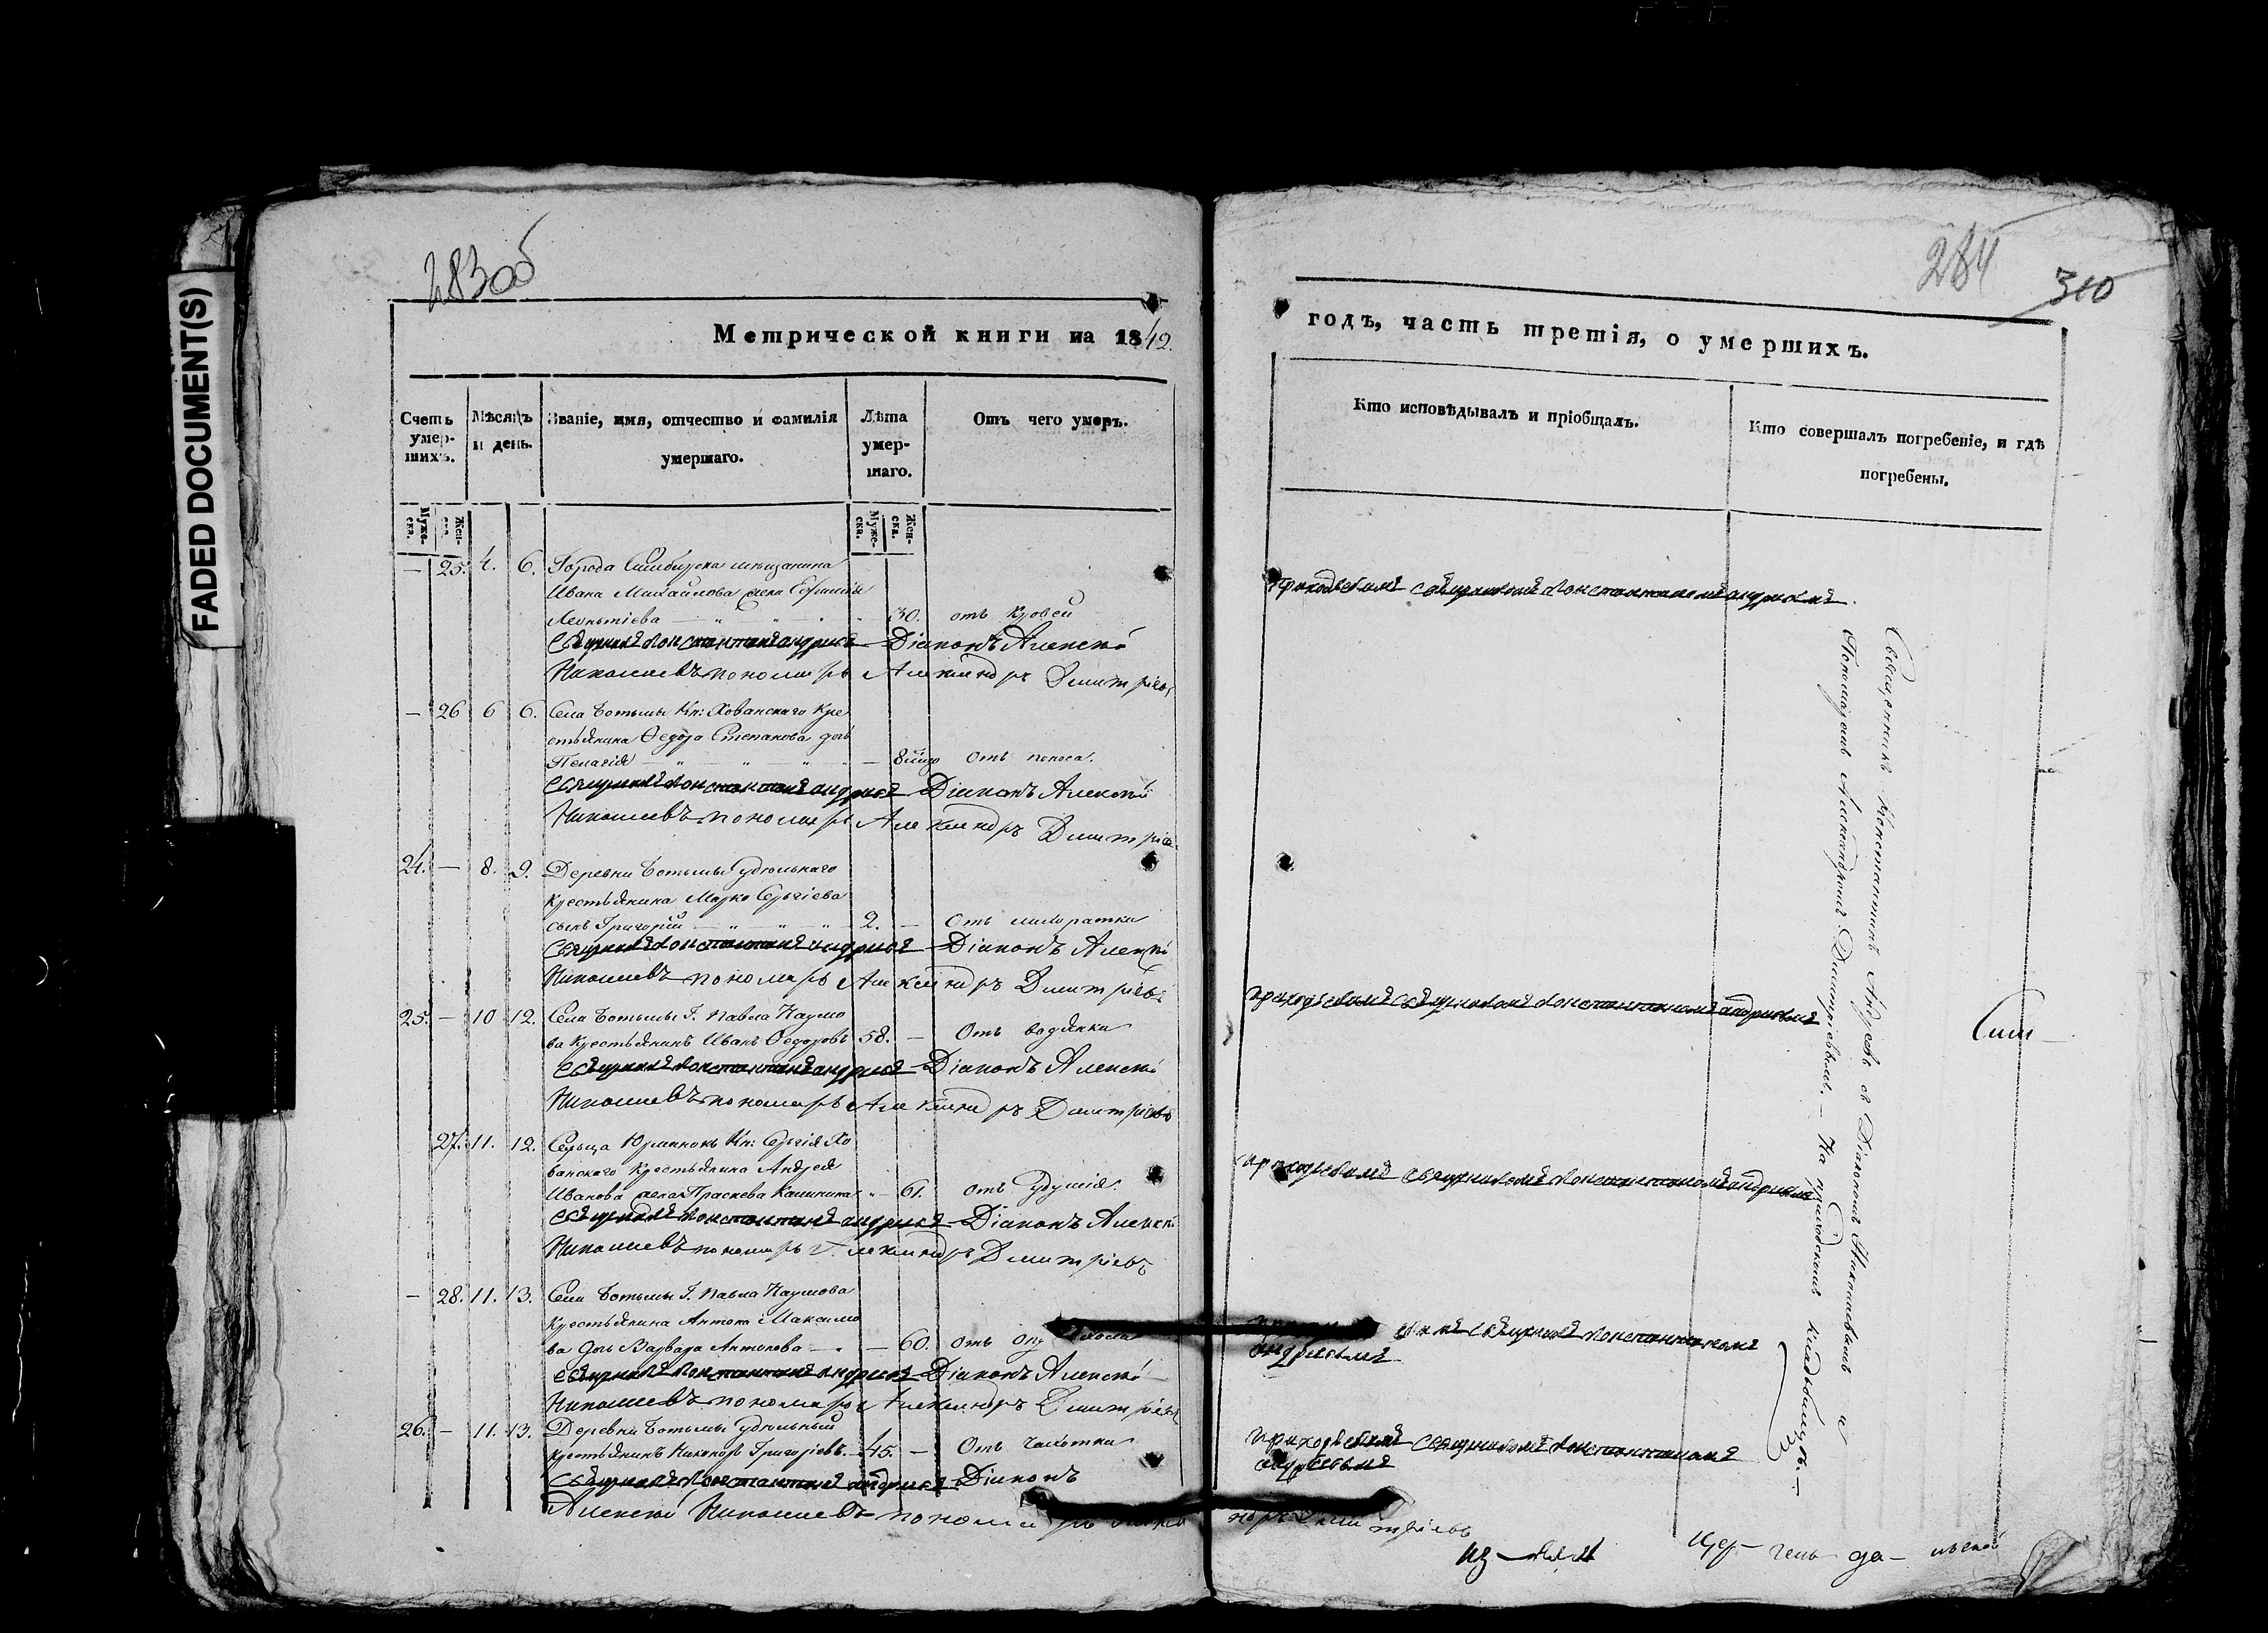 FADED DOCUMENT(S)
283 об
Метрической книги на 1842.
Счетъ умершихъ.
Мѣсяцъ и день.
Званіе, имя, отчество и фамилія умершаго.
Лѣта умершаго.
Отъ чего умеръ.
Мужеска.
Женска.
Мужеска.
Женска.
— 25. 4. 6. Города Симбирска мещанина
Ивана Михайлова жена
Леонтіева — 30. отъ
Священникъ Константинъ Андреевъ Діаконъ Алексѣй
Николаевъ пономарь Александръ Дмитріевъ
— 26 6 6. Села Ботьмы Кн: Хованскаго Кре
стьянина Ѳедора Степанова дочь
Пелагія — Отъ поноса.
Священникъ Константинъ Андреевъ Діаконъ Алексѣй
Николаевъ пономарь Александръ Дмитріевъ
24. — 8. 9. Деревни Ботьмы удѣльнаго
крестьянина Марко Сергіева
сынъ Григорій — 2. — Отъ
Священникъ Константинъ Андреевъ Діаконъ Алексѣй
Николаевъ пономарь Александръ Дмитріевъ
25. — 10 12. Села Ботьмы Г. Павла Наумо
ва крестьянинъ Иванъ Ѳедоровъ 58. — Отъ водянки
Священникъ Константинъ Андреевъ Діаконъ Алексѣй
Николаевъ пономарь Александръ Дмитріевъ
27. 11. 12. Сельца Кн: Сергія Хо
ванскаго крестьянина Андрея
Иванова жена Праскева — 61. Отъ удушія.
Священникъ Константинъ Андреевъ Діаконъ Алексѣй
Николаевъ пономарь Александръ Дмитріевъ
— 28. 11. 13. Села Ботьмы Г. Павла Наумова
крестьянина Антона Максимо
ва дочь Варвара Антонова — 60. Отъ
Священникъ Константинъ Андреевъ Діаконъ Алексѣй
Николаевъ пономарь Александръ Дмитріевъ
26. — 11. 13. Деревни Ботьмы удѣльный
крестьянинъ Григорьевъ 45. — Отъ чахотки
Священникъ Константинъ Андреевъ Діаконъ
Алексѣй Николаевъ пономарь
284
310
годъ, часть третія, о умершихъ.
Кто исповѣдывалъ и пріобщалъ.
Кто совершалъ погребеніе, и гдѣ погребены.
приходскимъ священникомъ Константиномъ Андреевымъ
приходскимъ священникомъ Константиномъ Андреевымъ
приходскимъ священникомъ Константиномъ Андреевымъ
священникомъ Константиномъ
Андреевымъ
приходскимъ священникомъ Константиномъ
Андреевымъ
Священникъ Константинъ Андреевъ съ Діакономъ Николаевымъ и
Пономаремъ Александромъ Дмитріевымъ. — На приходскомъ кладбищѣ. —